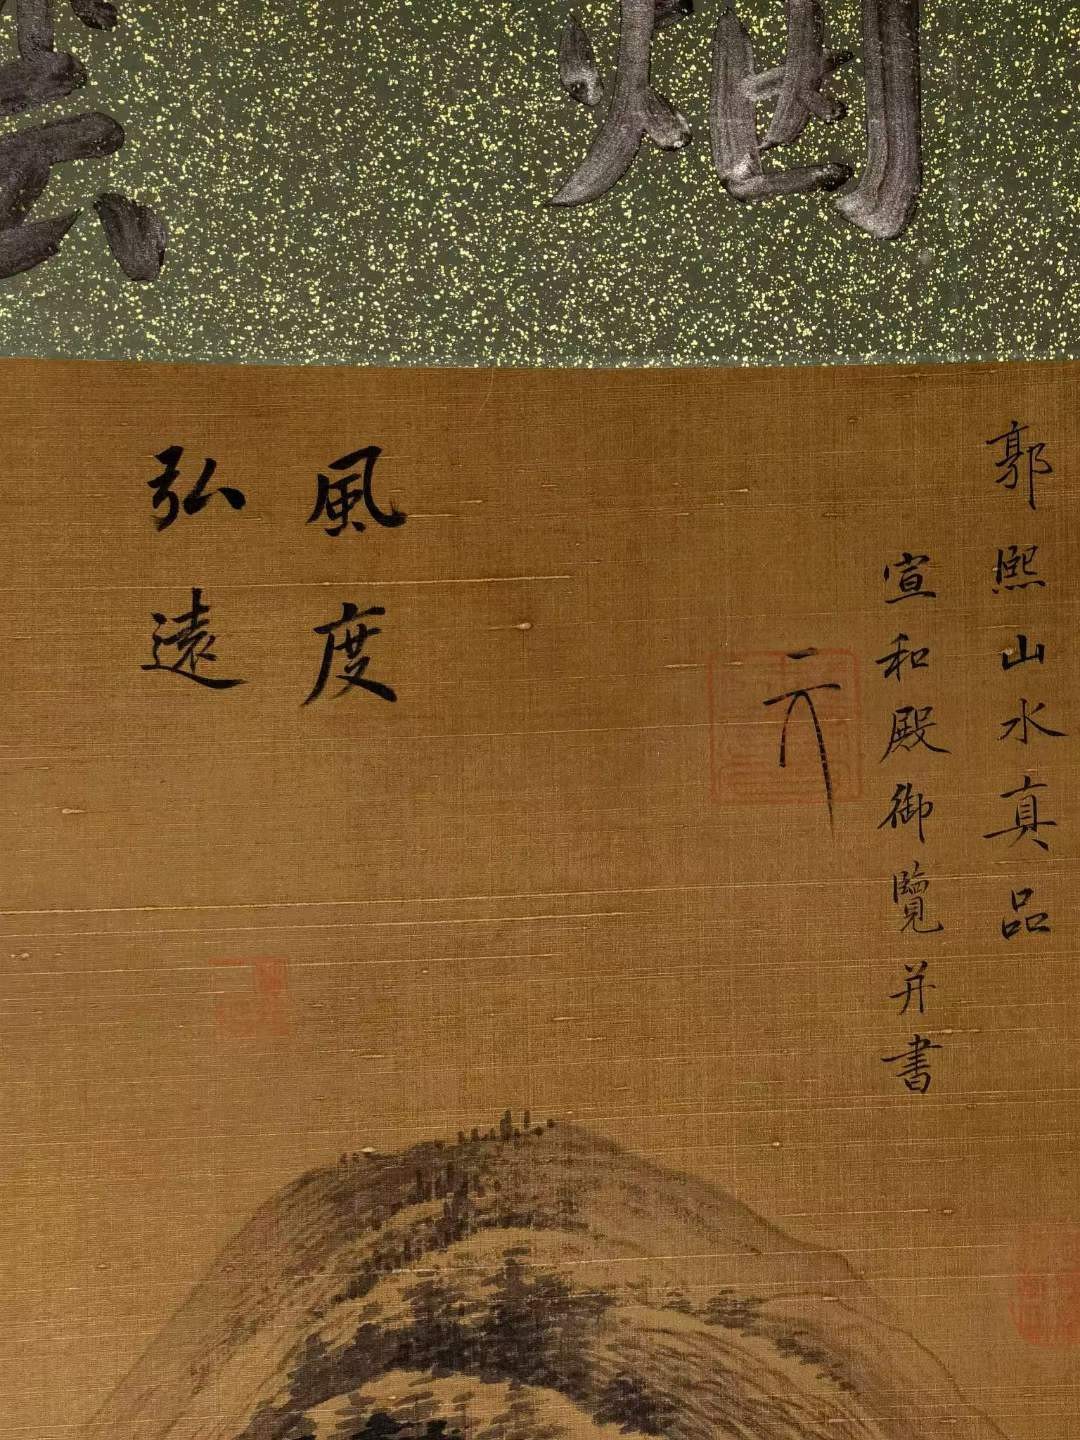 烟
雲
郭熙山水真品
宣和殿御覽并書
風度
弘遠